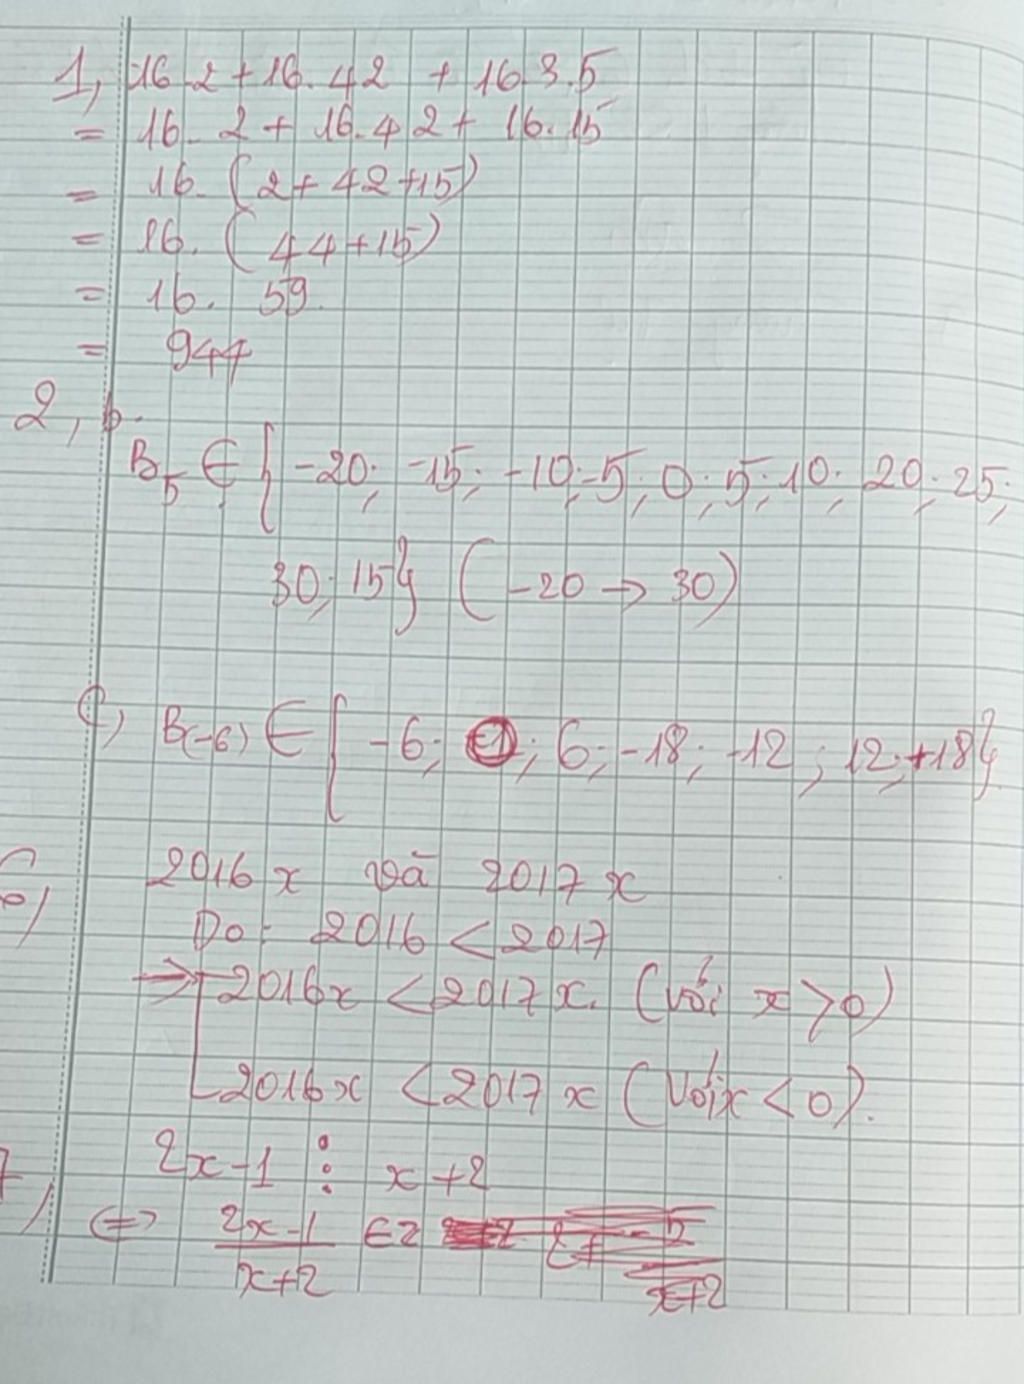 1, 16.2 + 16.42 + 16.3.5
= 16.2 + 16.42 + 16.15
= 16.(2+42+15)
= 16.(44+15)
= 16.59
= 944
2, b.
B5 ∈ { -20; -15; -10; -5; 0; 5; 10; 20; 25;
30; 15} (-20 → 30)
c, B(-6) ∈ { -6; ; 6; -18; -12; 12; +18}
2016x và 2017x
Do: 2016 < 2017
⇒ [ 2016x < 2017x. (với x > 0)
2016x < 2017x (với x < 0).
2x-1 ⋮ x+2
⇔ \frac{2x-1}{x+2} ∈ Z